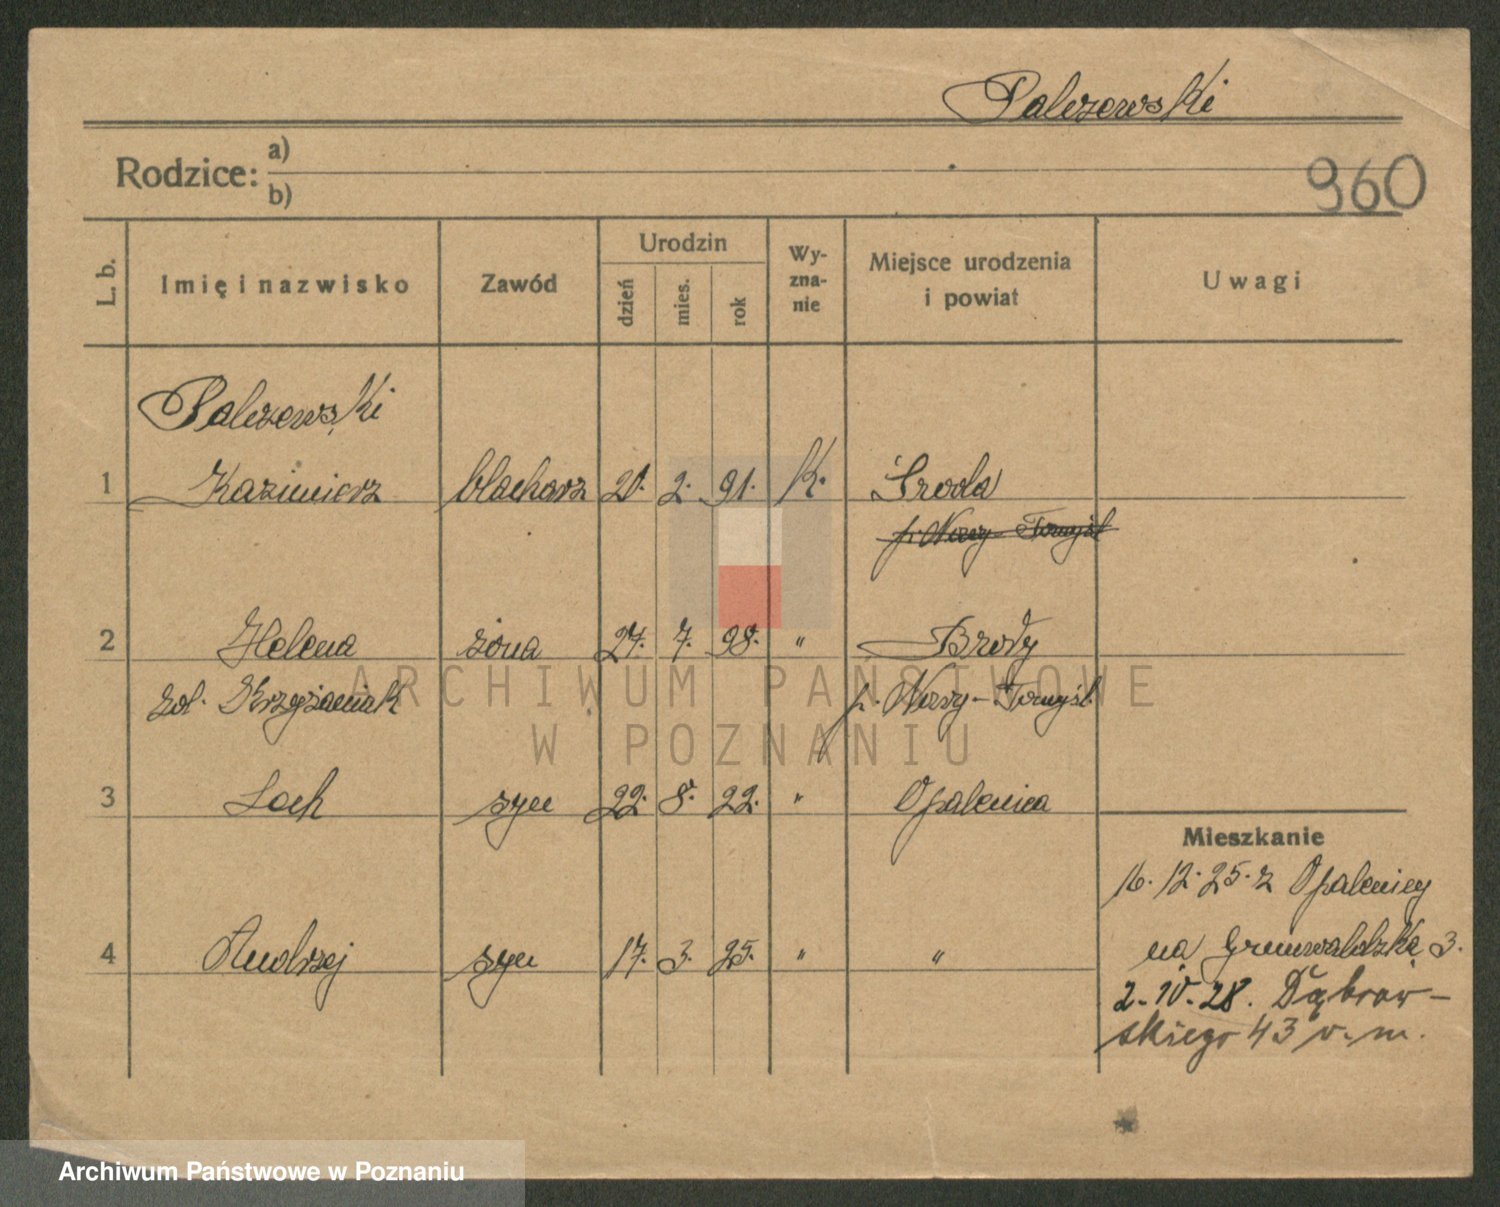 Palczewski
Rodzice: a)
b)
960
L. b.
Imię i nazwisko
Zawód
Urodzin
dzień
mies.
rok
Wy-
zna-
nie
Miejsce urodzenia
i powiat
Uwagi
Palczewski
1 Kazimierz blacharz 21. 2. 91. K. Środa
p. Nowy-Tomyśl
2 Helena żona 27. 7. 98. " Brody
zol. Krzyżaniak p. Nowy-Tomyśl.
3 Lech syn 22. 8. 22. " Opalenica
Mieszkanie
16. 12. 25. z Opalenicy
4 Andrzej syn 17. 3. 25. " "
na Grunwaldzką 3.
2. IV. 28. Dąbrow-
skiego 43 v. m.
ARCHIWUM PAŃSTWOWE
W POZNANIU
Archiwum Państwowe w Poznaniu